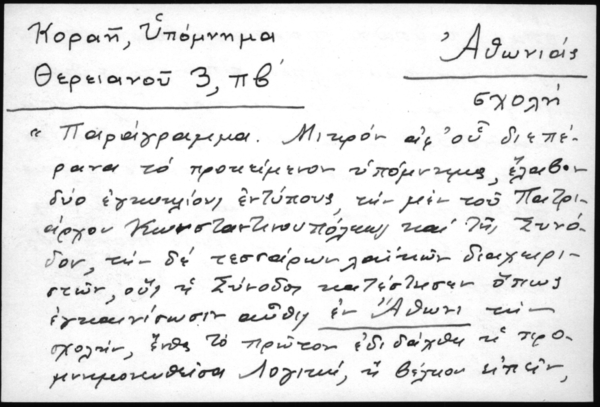 Κοραῆ, Ὑπόμνημα
Θερειανοῦ 3, πβ΄
Ἀθωνιάς
σχολή
" Παράγραμμα. Μικρόν ἀφ' οὗ διεπέ-
ρανα τό προκείμενον ὑπόμνημα, ἔλαβον
δύο ἐγκυκλίους ἐντύπους, τήν μέν τοῦ Πατρι-
άρχου Κωνσταντινουπόλεως καί τῆς Συνό-
δου, τήν δέ τεσσάρων λαϊκῶν διαχειρι-
στῶν, οὕς ἡ Σύνοδος κατέστησεν ὅπως
ἐγκαινίσωσιν αὖθις ἐν Ἄθωνι τήν
σχολήν, ἔνθα τό πρῶτον ἐδιδάχθη ἡ προ-
μνημονευθεῖσα Λογική, ἤ βέλτιον εἰπεῖν,